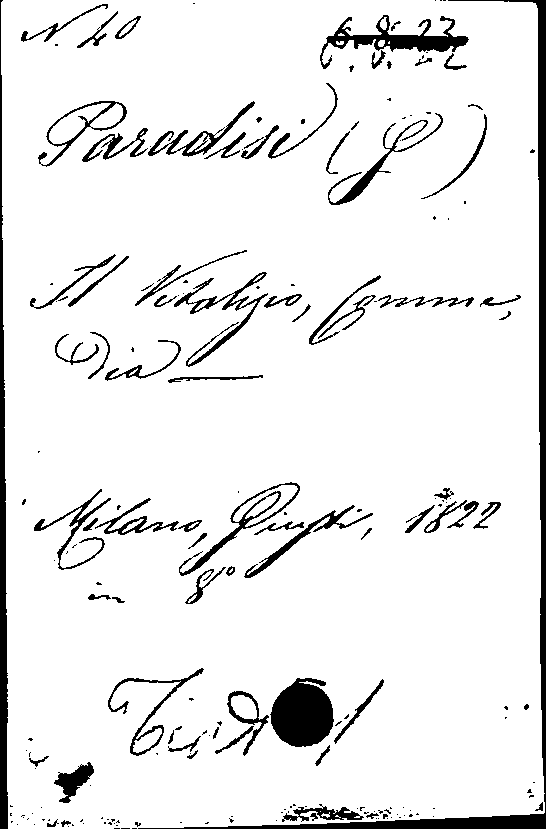 N. 40
6. 8. 22
Paradisi (G)
Il Vitalizio, Comme,
dia —
Milano, Giusti, 1822
in 8º